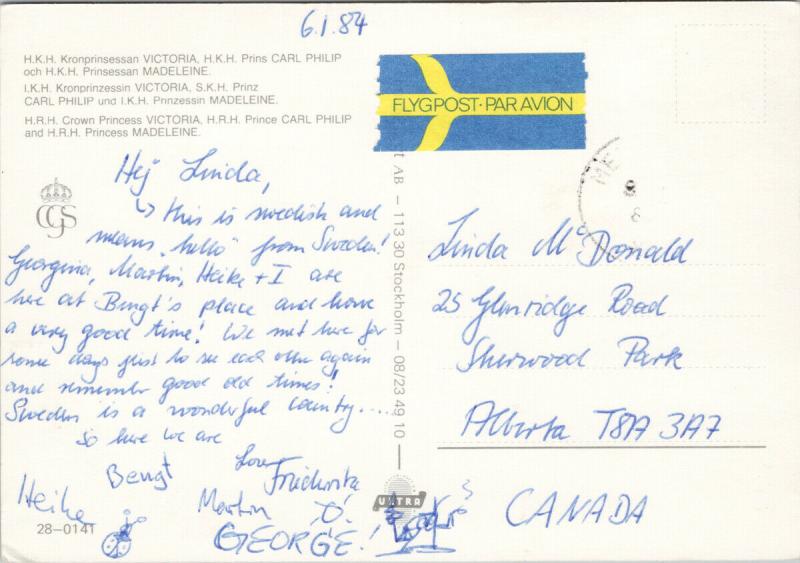 6.1.84
H.K.H. Kronprinsessan VICTORIA, H.K.H. Prins CARL PHILIP
och H.K.H. Prinsessan MADELEINE.
I.K.H. Kronprinzessin VICTORIA, S.K.H. Prinz
CARL PHILIP und I.K.H. Prinzessin MADELEINE.
H.R.H. Crown Princess VICTORIA, H.R.H. Prince CARL PHILIP
and H.R.H. Princess MADELEINE.
FLYGPOST·PAR AVION
CGS
Hej Linda,
↳ this is swedish and
means „hello" from Sweden!
Georgina, Martin, Heike + I are
here at Bengt's place and have
a very good time! We met here for
some days just to see each other again
and remember good old times!
Sweden is a wonderful country....
so here we are
Love
Bengt
Heike
Martin
GEORGE!
28-0141
AB - 113 30 Stockholm - 08/23 49 10 -
ULTRA
Linda McDonald
25 Glenridge Road
Sherwood Park
Alberta T8A 3A7
CANADA